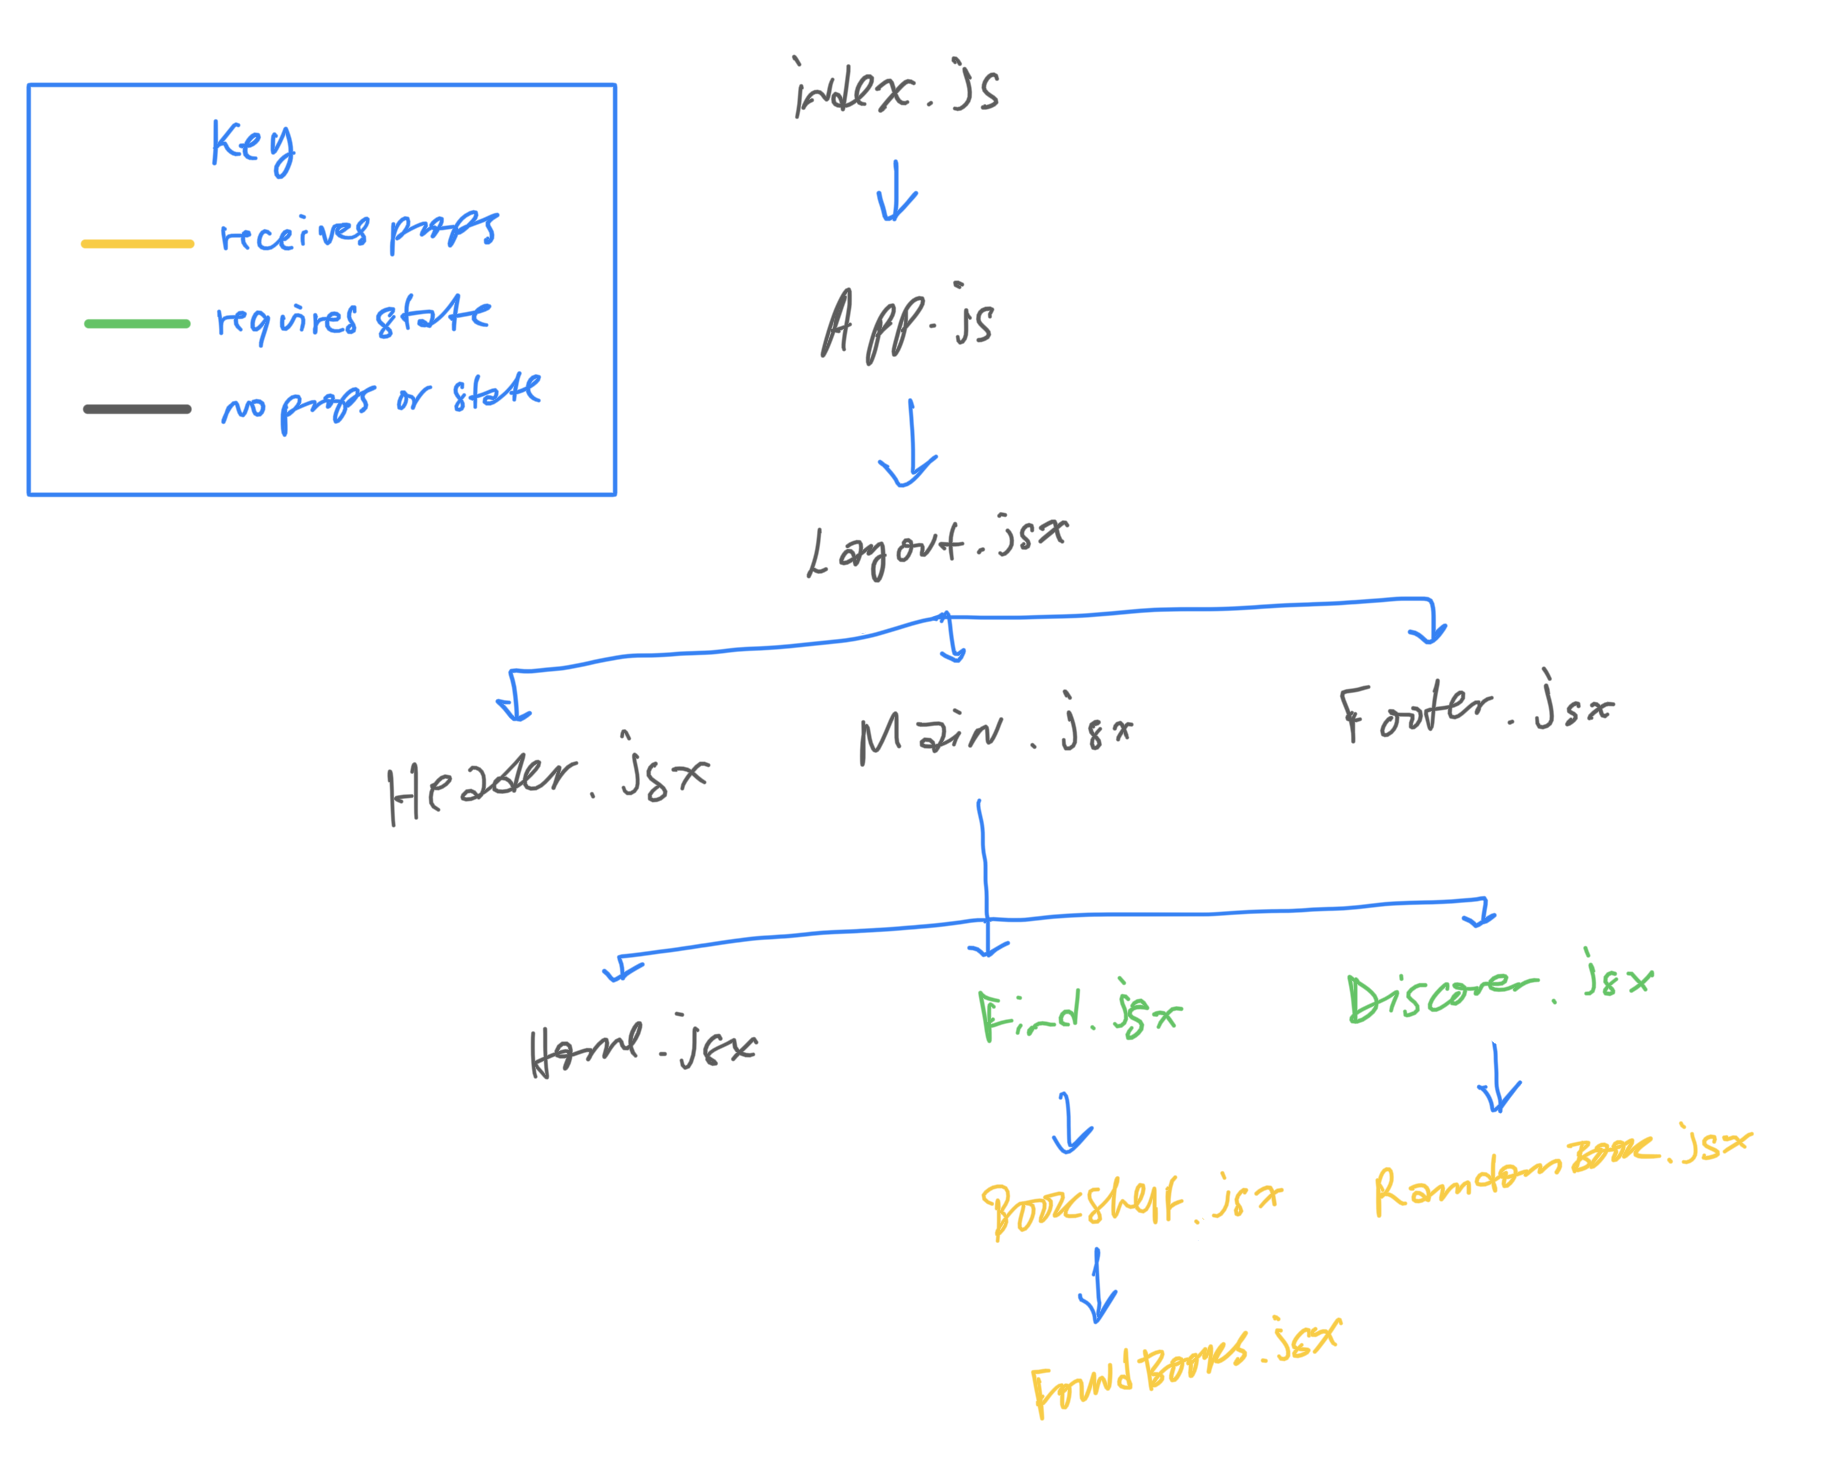 index.js
Key
receives props
requires state
no props or state
App.js
Layout.jsx
Header.jsx
Main.jsx
Footer.jsx
Home.jsx
Find.jsx
Discover.jsx
Bookshelf.jsx
RamdomBook.jsx
FoundBooks.jsx